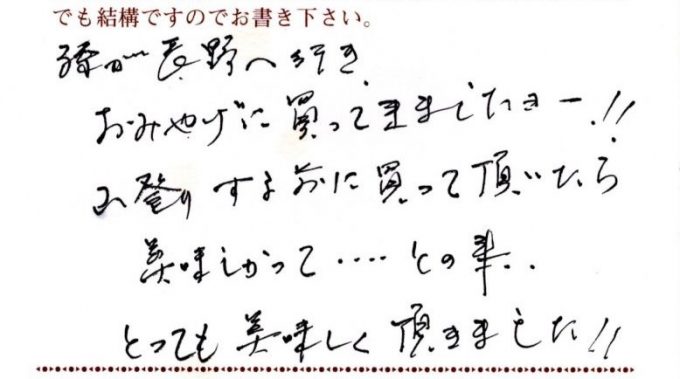 でも結構ですのでお書き下さい。
孫が長野へ行き
おみやげに買ってきましたきー!!
山登りする前に買って頂いたら
美味しかって‥‥との事..
とっても美味しく頂きました!!